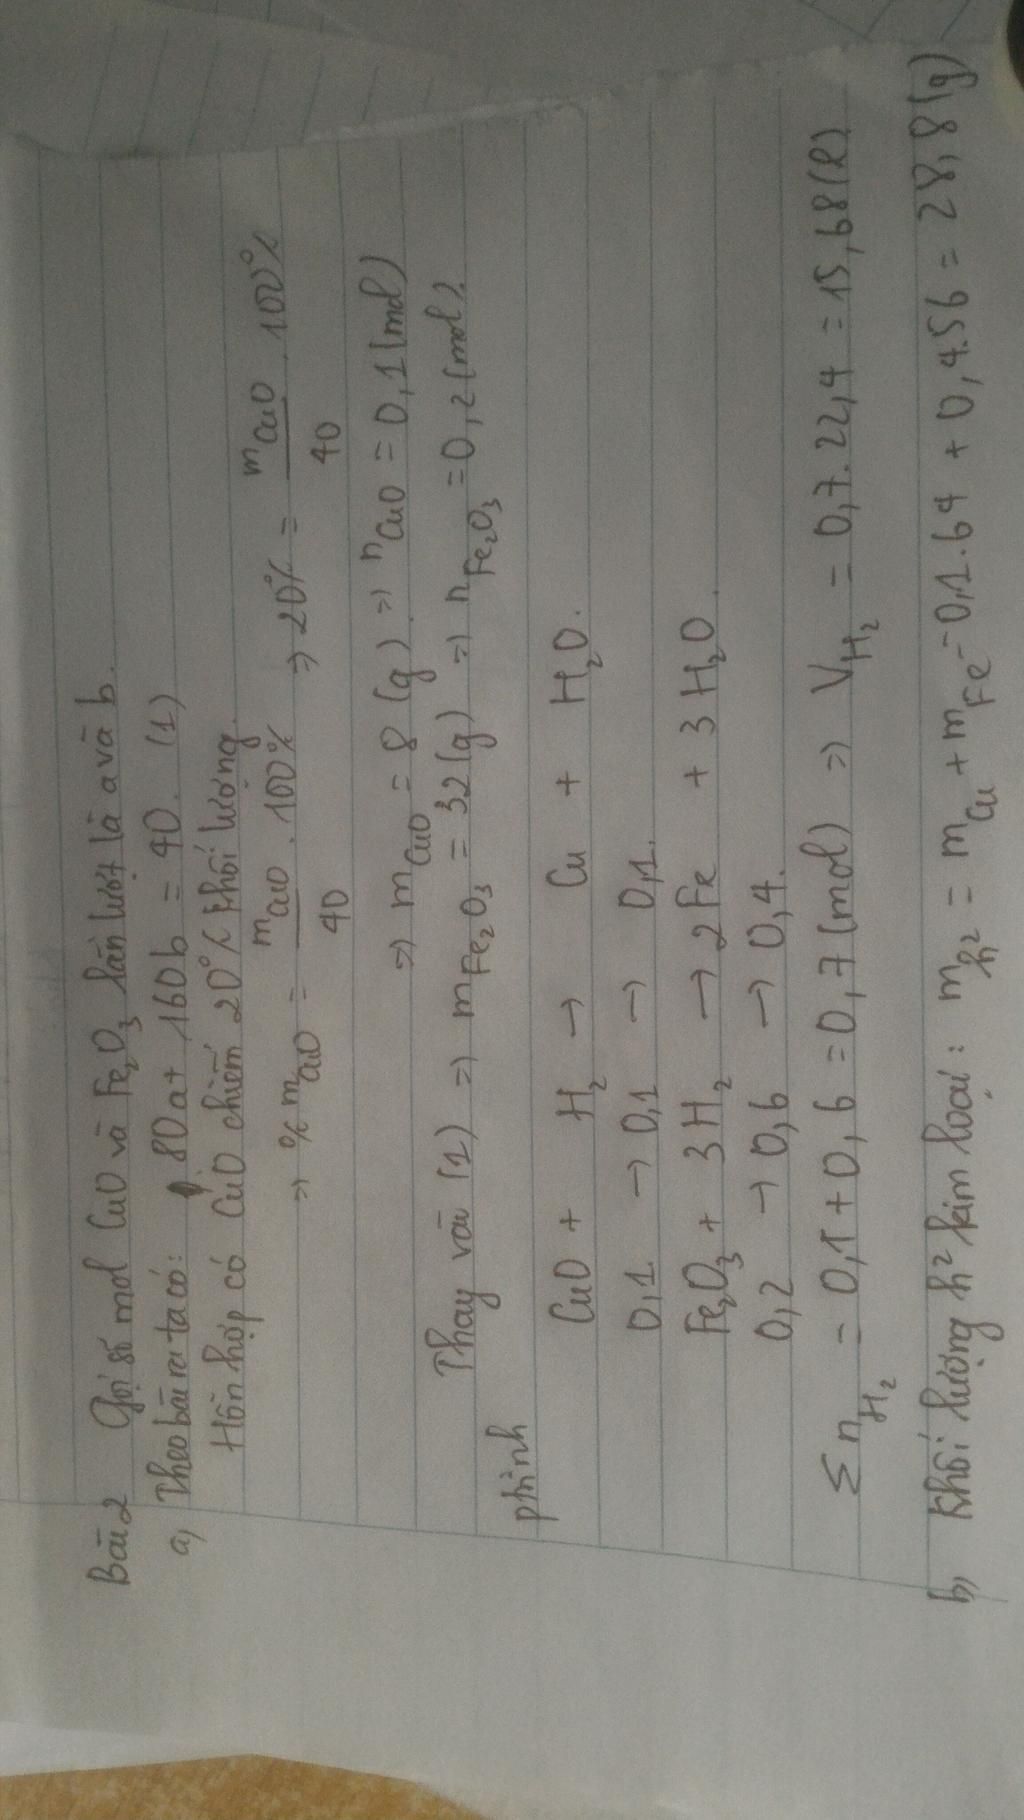 Bài 2 Gọi số mol CuO và Fe2O3 lần lượt là a và b.
a, Theo bài ra ta có: 80a + 160b = 40. (1)
Hỗn hợp có CuO chiếm 20% khối lượng.
=> % mCuO = mCuO/40 . 100% => 20% = mCuO/40 . 100%
=> mCuO = 8 (g) => nCuO = 0,1 (mol)
Thay vào (1) => mFe2O3 = 32 (g) => nFe2O3 = 0,2 (mol).
ptrình
CuO + H2 → Cu + H2O.
0,1 → 0,1 → 0,1.
Fe2O3 + 3H2 → 2Fe + 3H2O.
0,2 → 0,6 → 0,4.
Σ nH2 = 0,1 + 0,6 = 0,7 (mol) => VH2 = 0,7.22,4 = 15,68 (l)
b, Khối lượng h² kim loại: mh² = mCu + mFe = 0,1.64 + 0,4.56 = 28,8 (g)